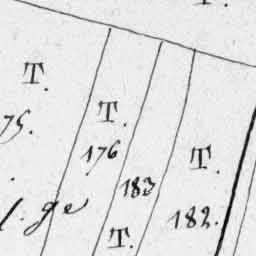 T.
T.
75.
176
T.
183
182.
l. ge
T.